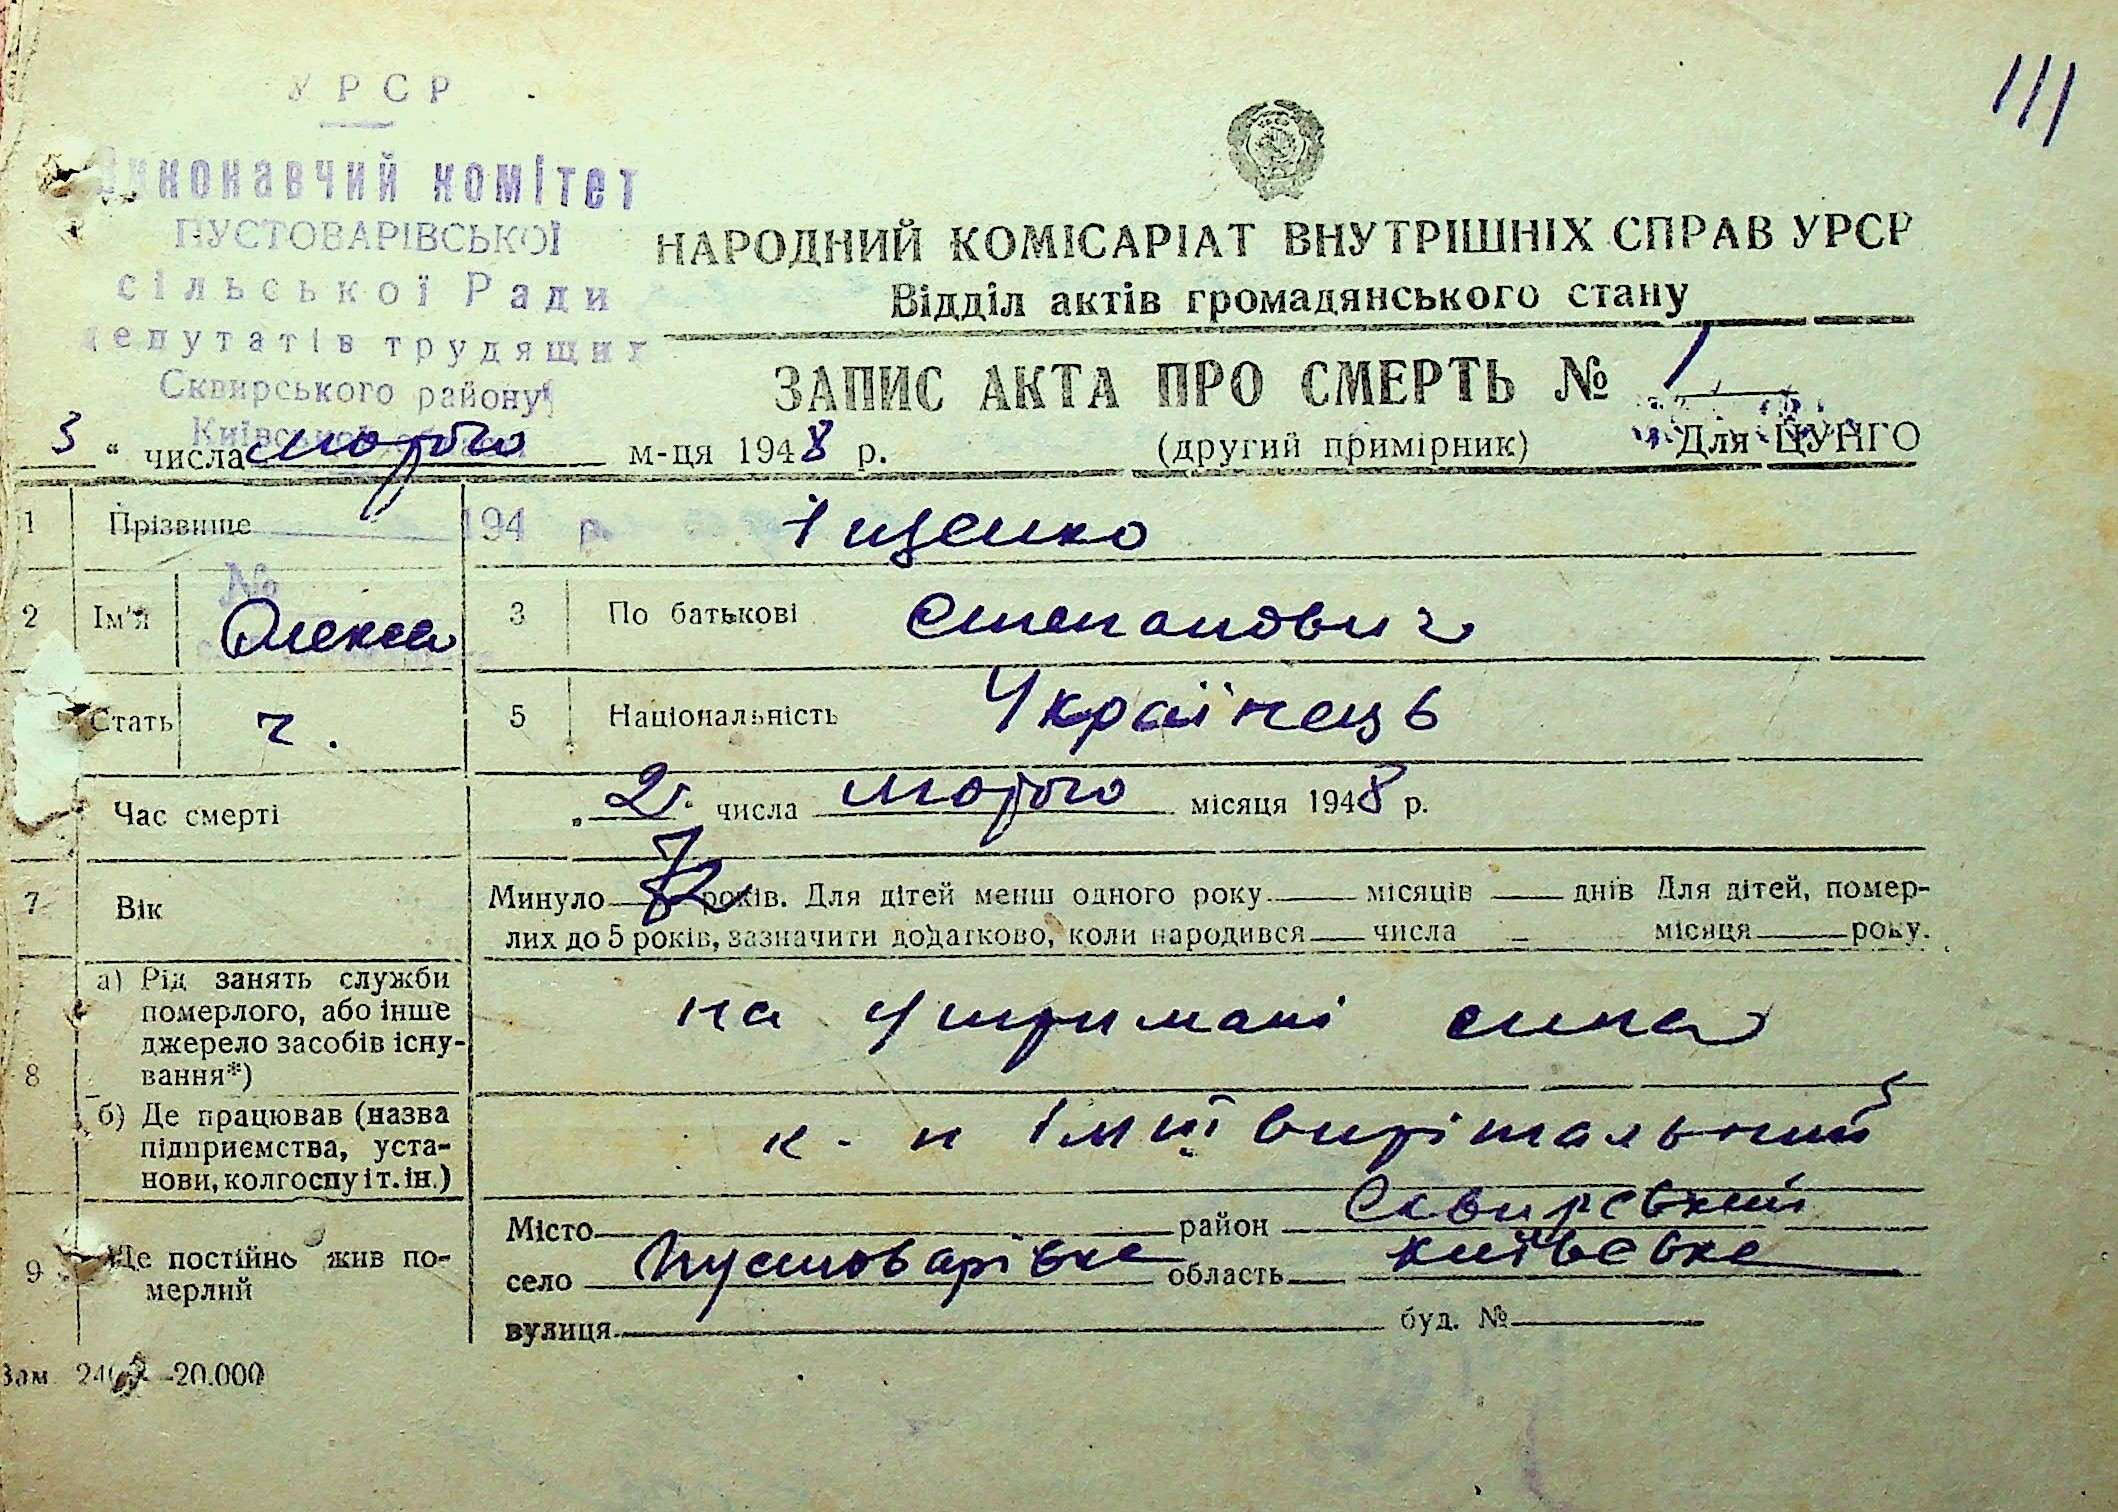 111
УРСР
Виконавчий комітет
ПУСТОВАРІВСЬКОЇ
сільської Ради
депутатів трудящих
Сквирського району
Київської
НАРОДНИЙ КОМІСАРІАТ ВНУТРІШНІХ СПРАВ УРСР
Відділ актів громадянського стану
ЗАПИС АКТА ПРО СМЕРТЬ № 1
3 " числа лютого м-ця 1948 р. (другий примірник) Для ЦУНГО
1 Прізвище 194 р. Іщенко
№
2 Ім'я Олекса 3 По батькові Степанович
Стать ч. 5 Національність Українець
Час смерті „ 2 " числа лютого місяця 1948 р.
7 Вік Минуло 72 років. Для дітей менш одного року місяців днів Для дітей, помер-
лих до 5 років, зазначити додатково, коли народився числа місяця року.
8 а) Рід занять служби
померлого, або інше
джерело засобів існу-
вання*)
на утримані сина
б) Де працював (назва
підприємства, уста-
нови, колгоспу і т. ін.)
к-п ІМ ІІІ вирішальний
9 Де постійно жив по-
мерлий
Місто район Сквирський
село Пустоварівка область київська
вулиця буд. №
Зам. -20.000